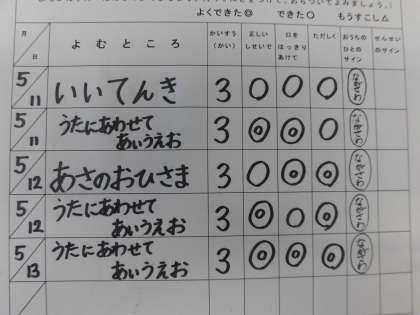 よくできた◎　できた○　もうすこし△
月
日
よむところ
かいすう
(かい)
正しい
しせいで
口を
はっきり
あけて
ただしく
おうちの
ひとの
サイン
せんせい
のサイン
5/11 いいてんき 3 ○ ○ ○
5/11 うたにあわせて
あいうえお 3 ◎ ◎ ○
5/12 あさのおひさま 3 ○ ◎ ◎
5/12 うたにあわせて
あいうえお 3 ◎ ○ ◎
5/13 うたにあわせて
あいうえお 3 ◎ ◎ ◎